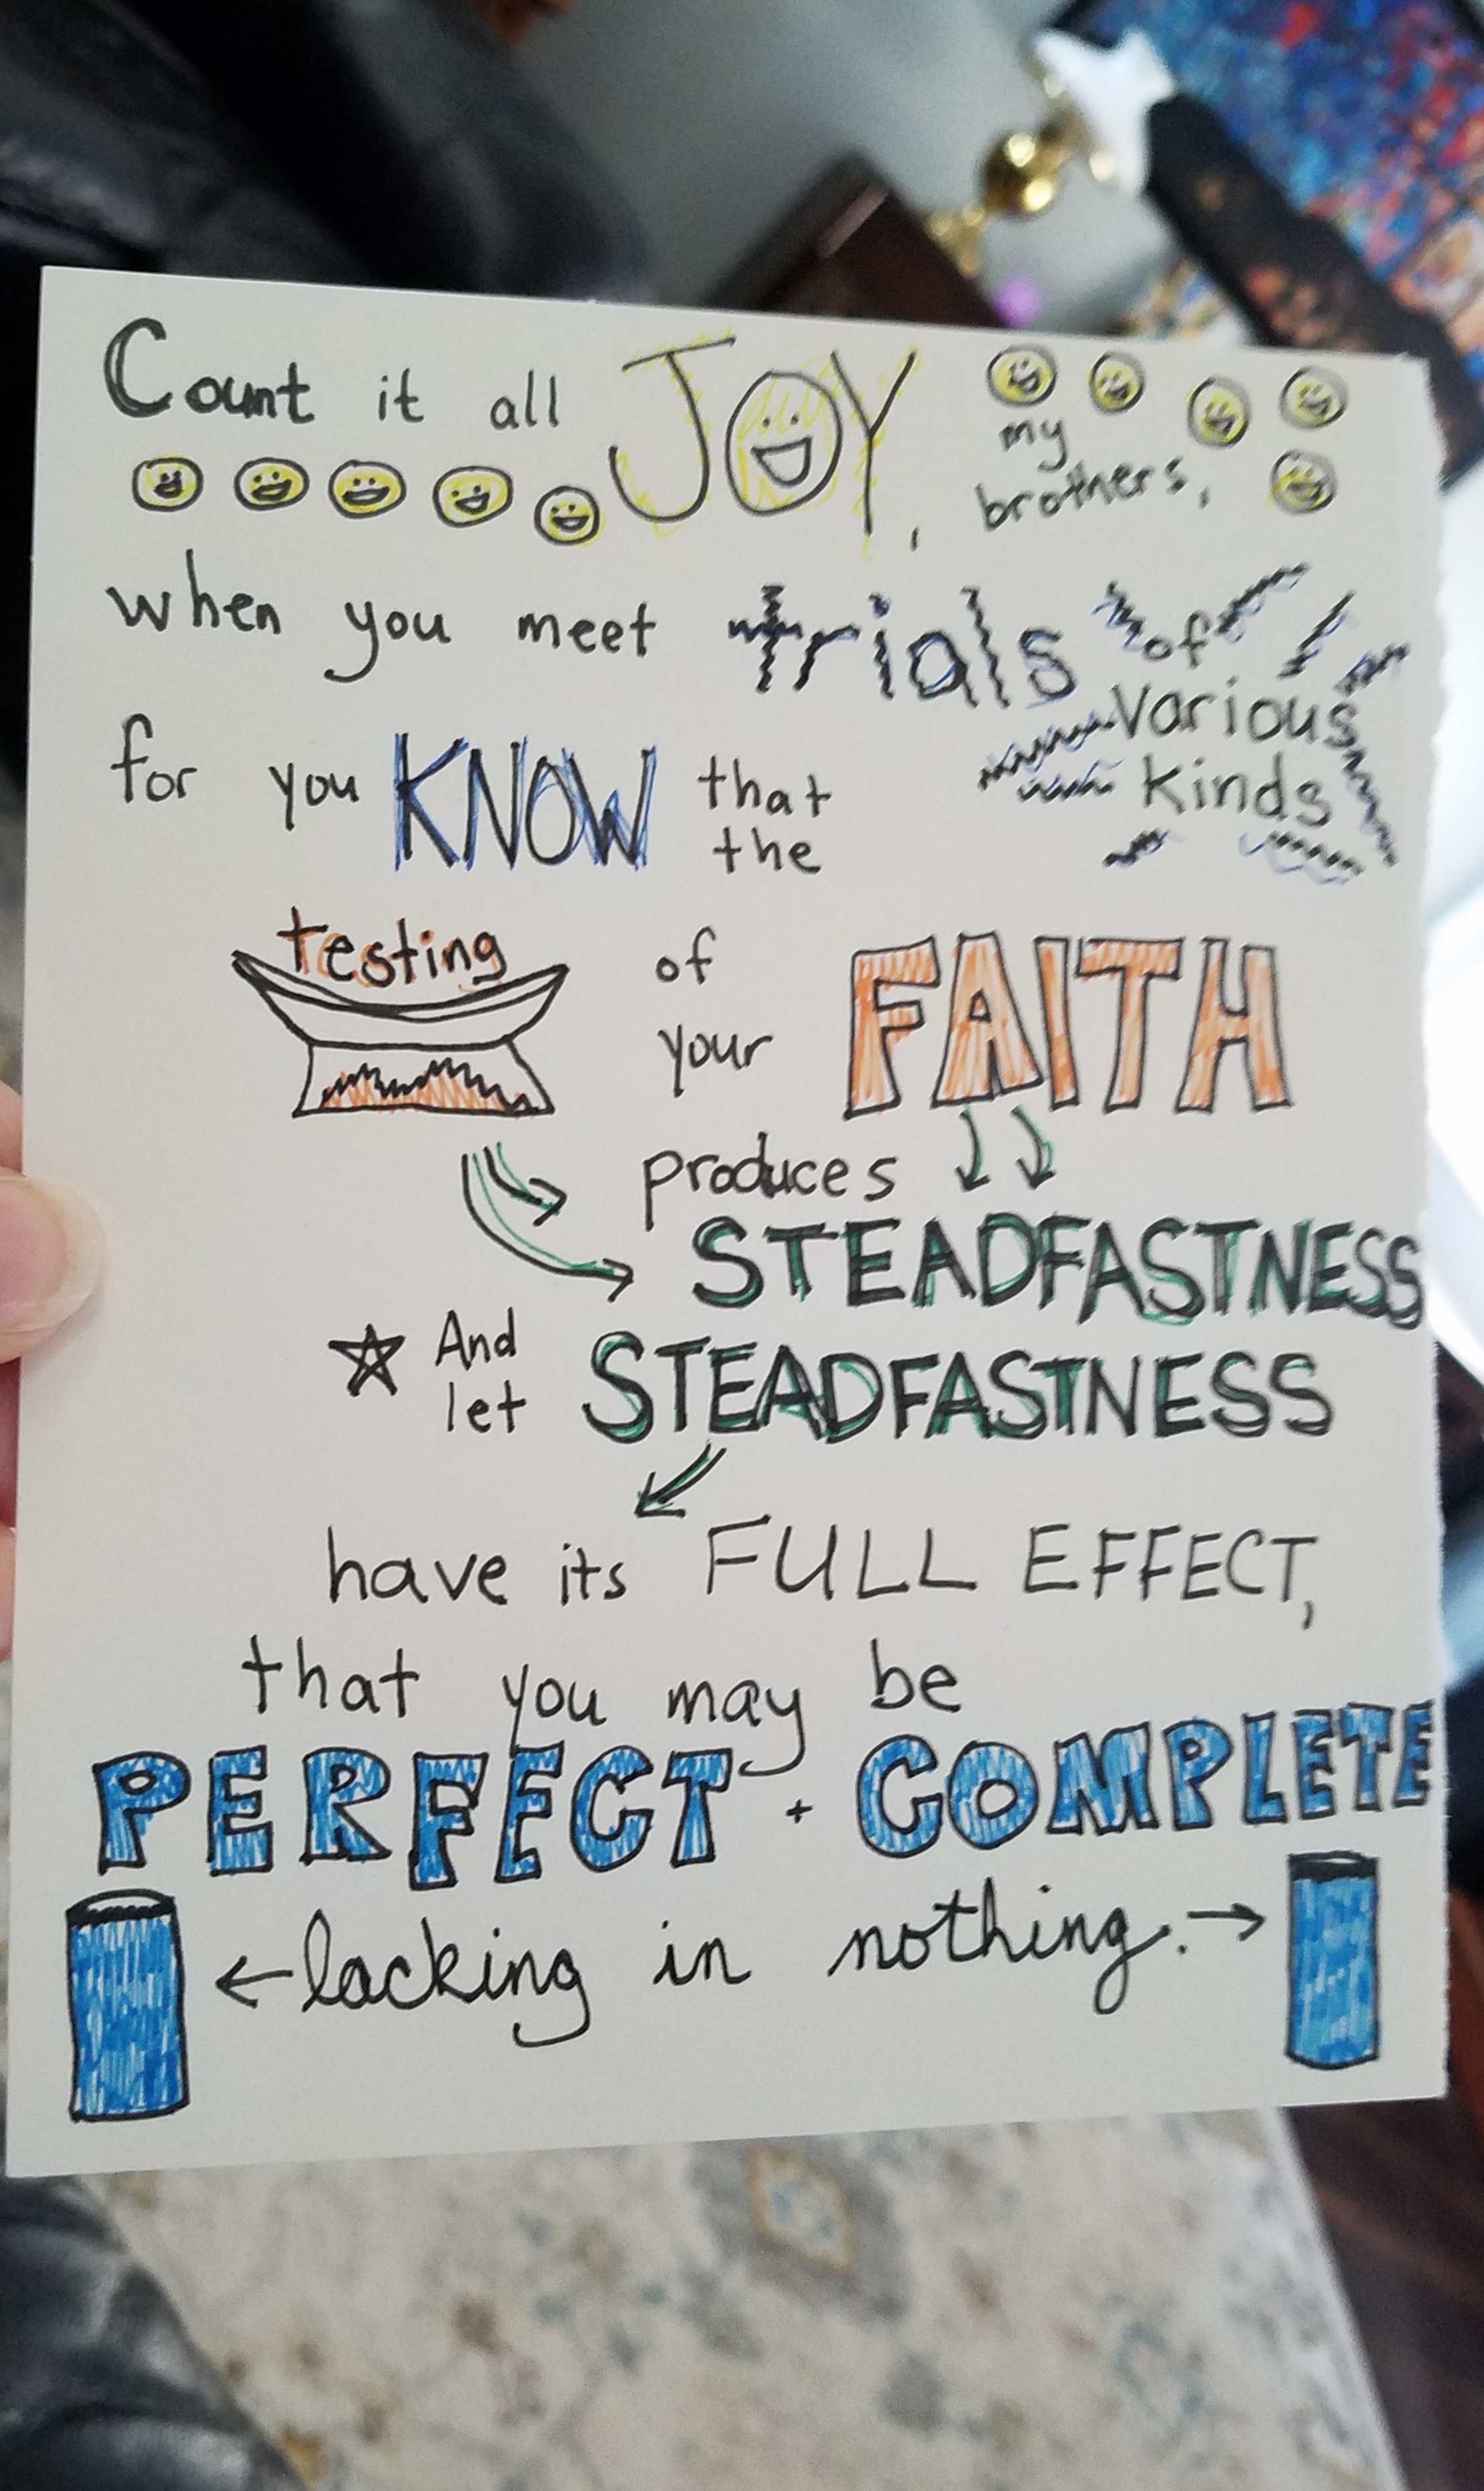 Count it all JOY, my brothers,
when you meet trials of various kinds
for you KNOW that the
testing of your FAITH
produces
STEADFASTNESS
And let STEADFASTNESS
have its FULL EFFECT,
that you may be
PERFECT + COMPLETE
lacking in nothing.